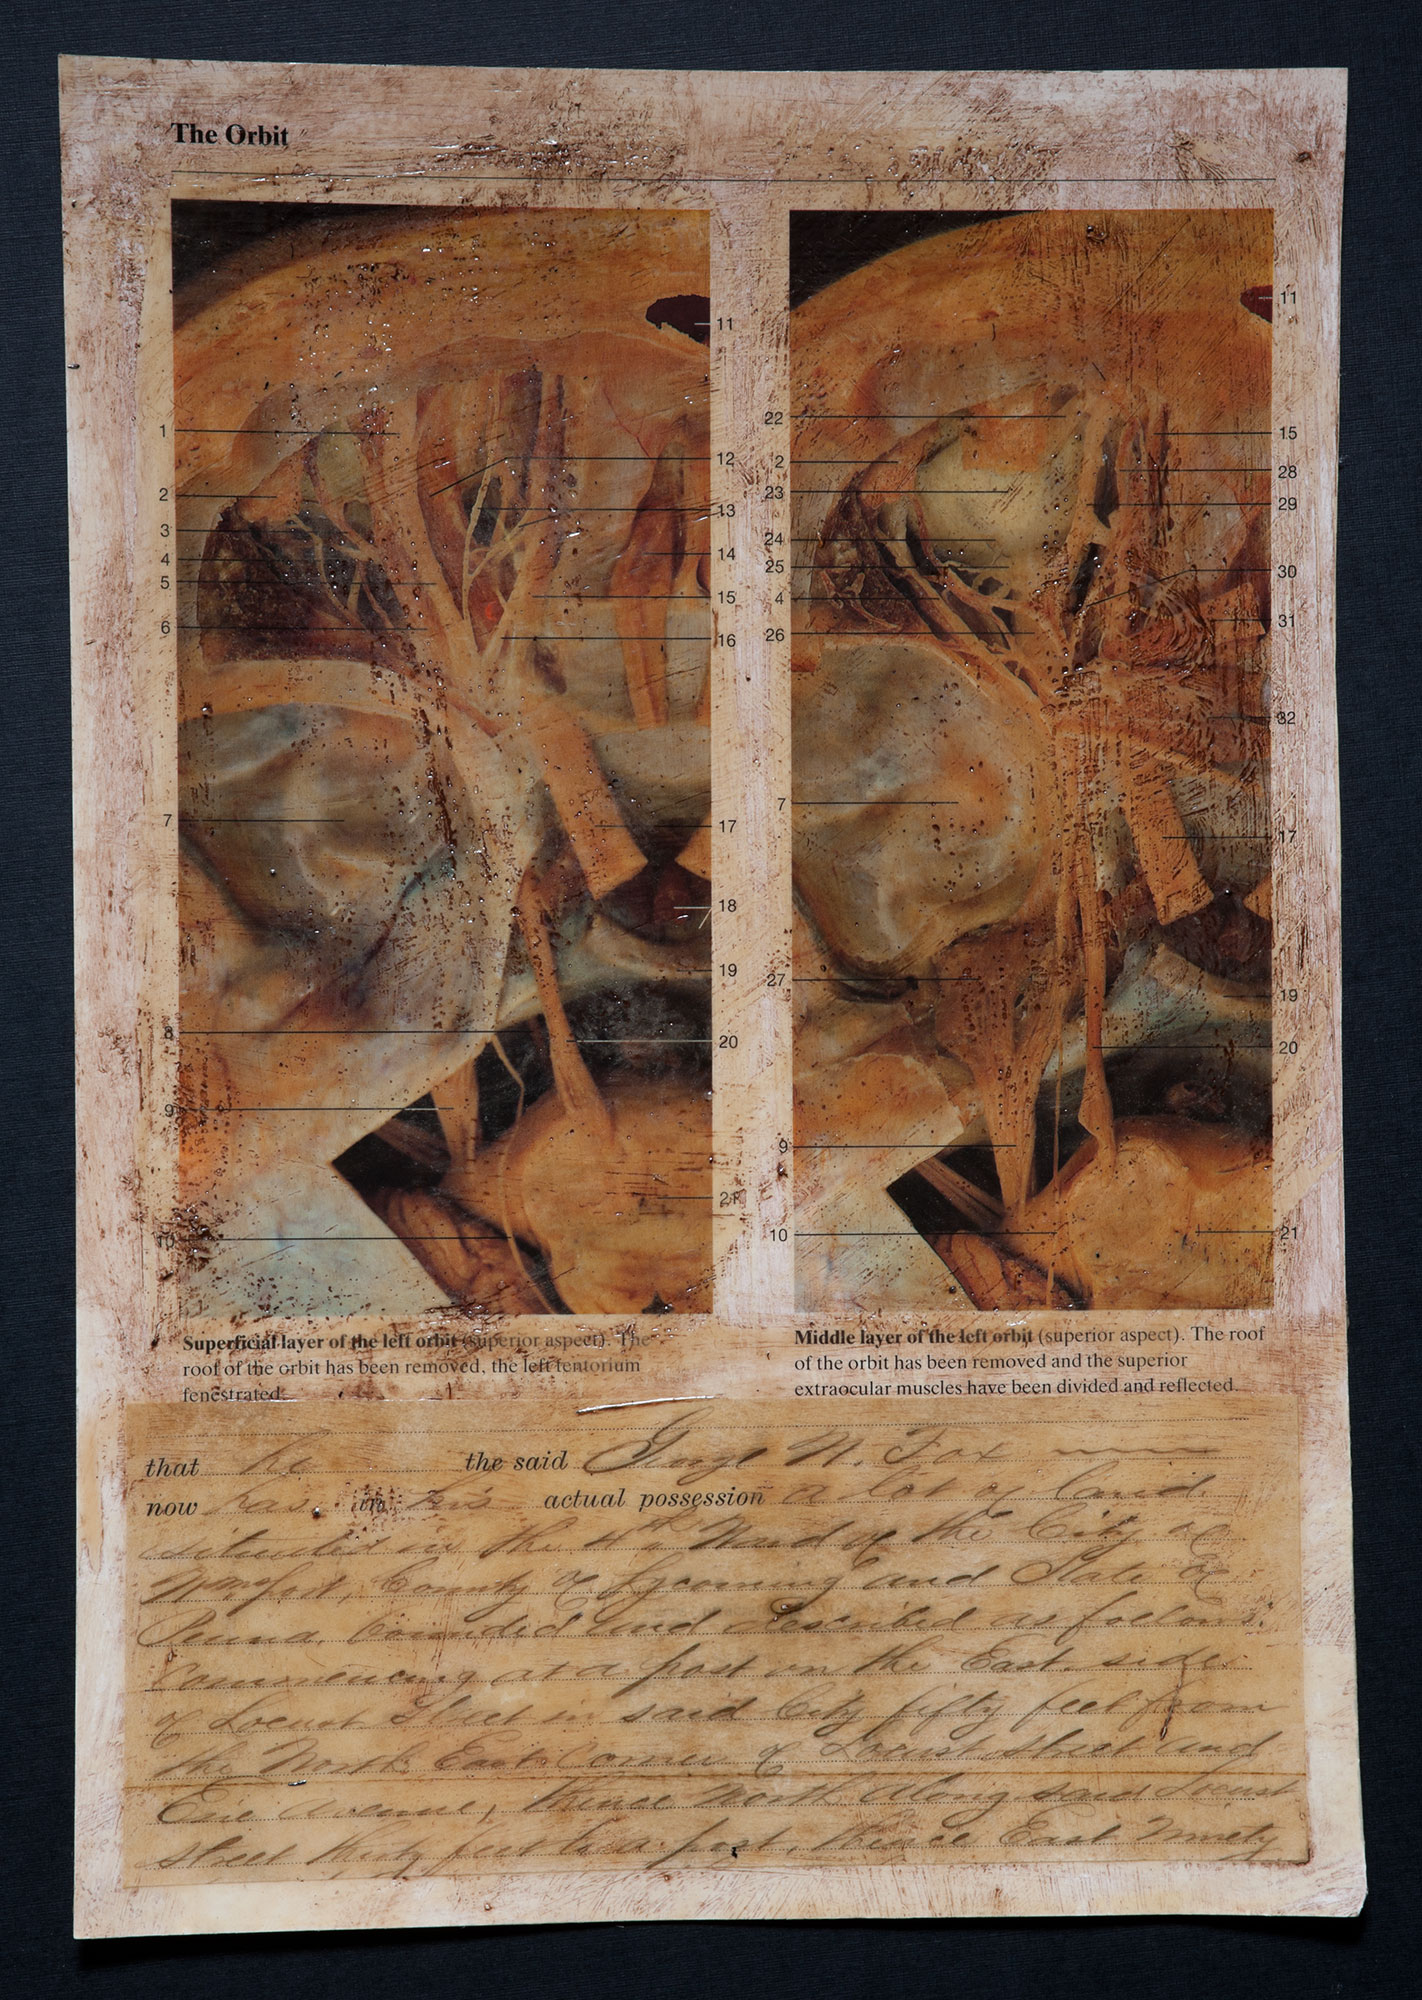 The Orbit
11
1
12
2
13
3
14
4
5
15
6
16
7
17
18
19
8
20
9
21
10
11
22
15
2
28
23
29
24
25
30
4
31
26
32
7
17
27
19
20
9
10
21
Superficial layer of the left orbit (superior aspect). The
roof of the orbit has been removed, the left tentorium
fenestrated.
Middle layer of the left orbit (superior aspect). The roof
of the orbit has been removed and the superior
extraocular muscles have been divided and reflected.
that he the said George N. Fox
now has in his actual possession a lot of land
situated in the 4th Ward of the City of
Wmsport, County of Lycoming and State of
Penna. bounded and described as follows:
Commencing at a post on the East side
of Locust Street in said City fifty feet from
the North East Corner of Locust Street and
Erie Avenue, thence North along said Locust
Street thirty feet to a post, thence East Ninety